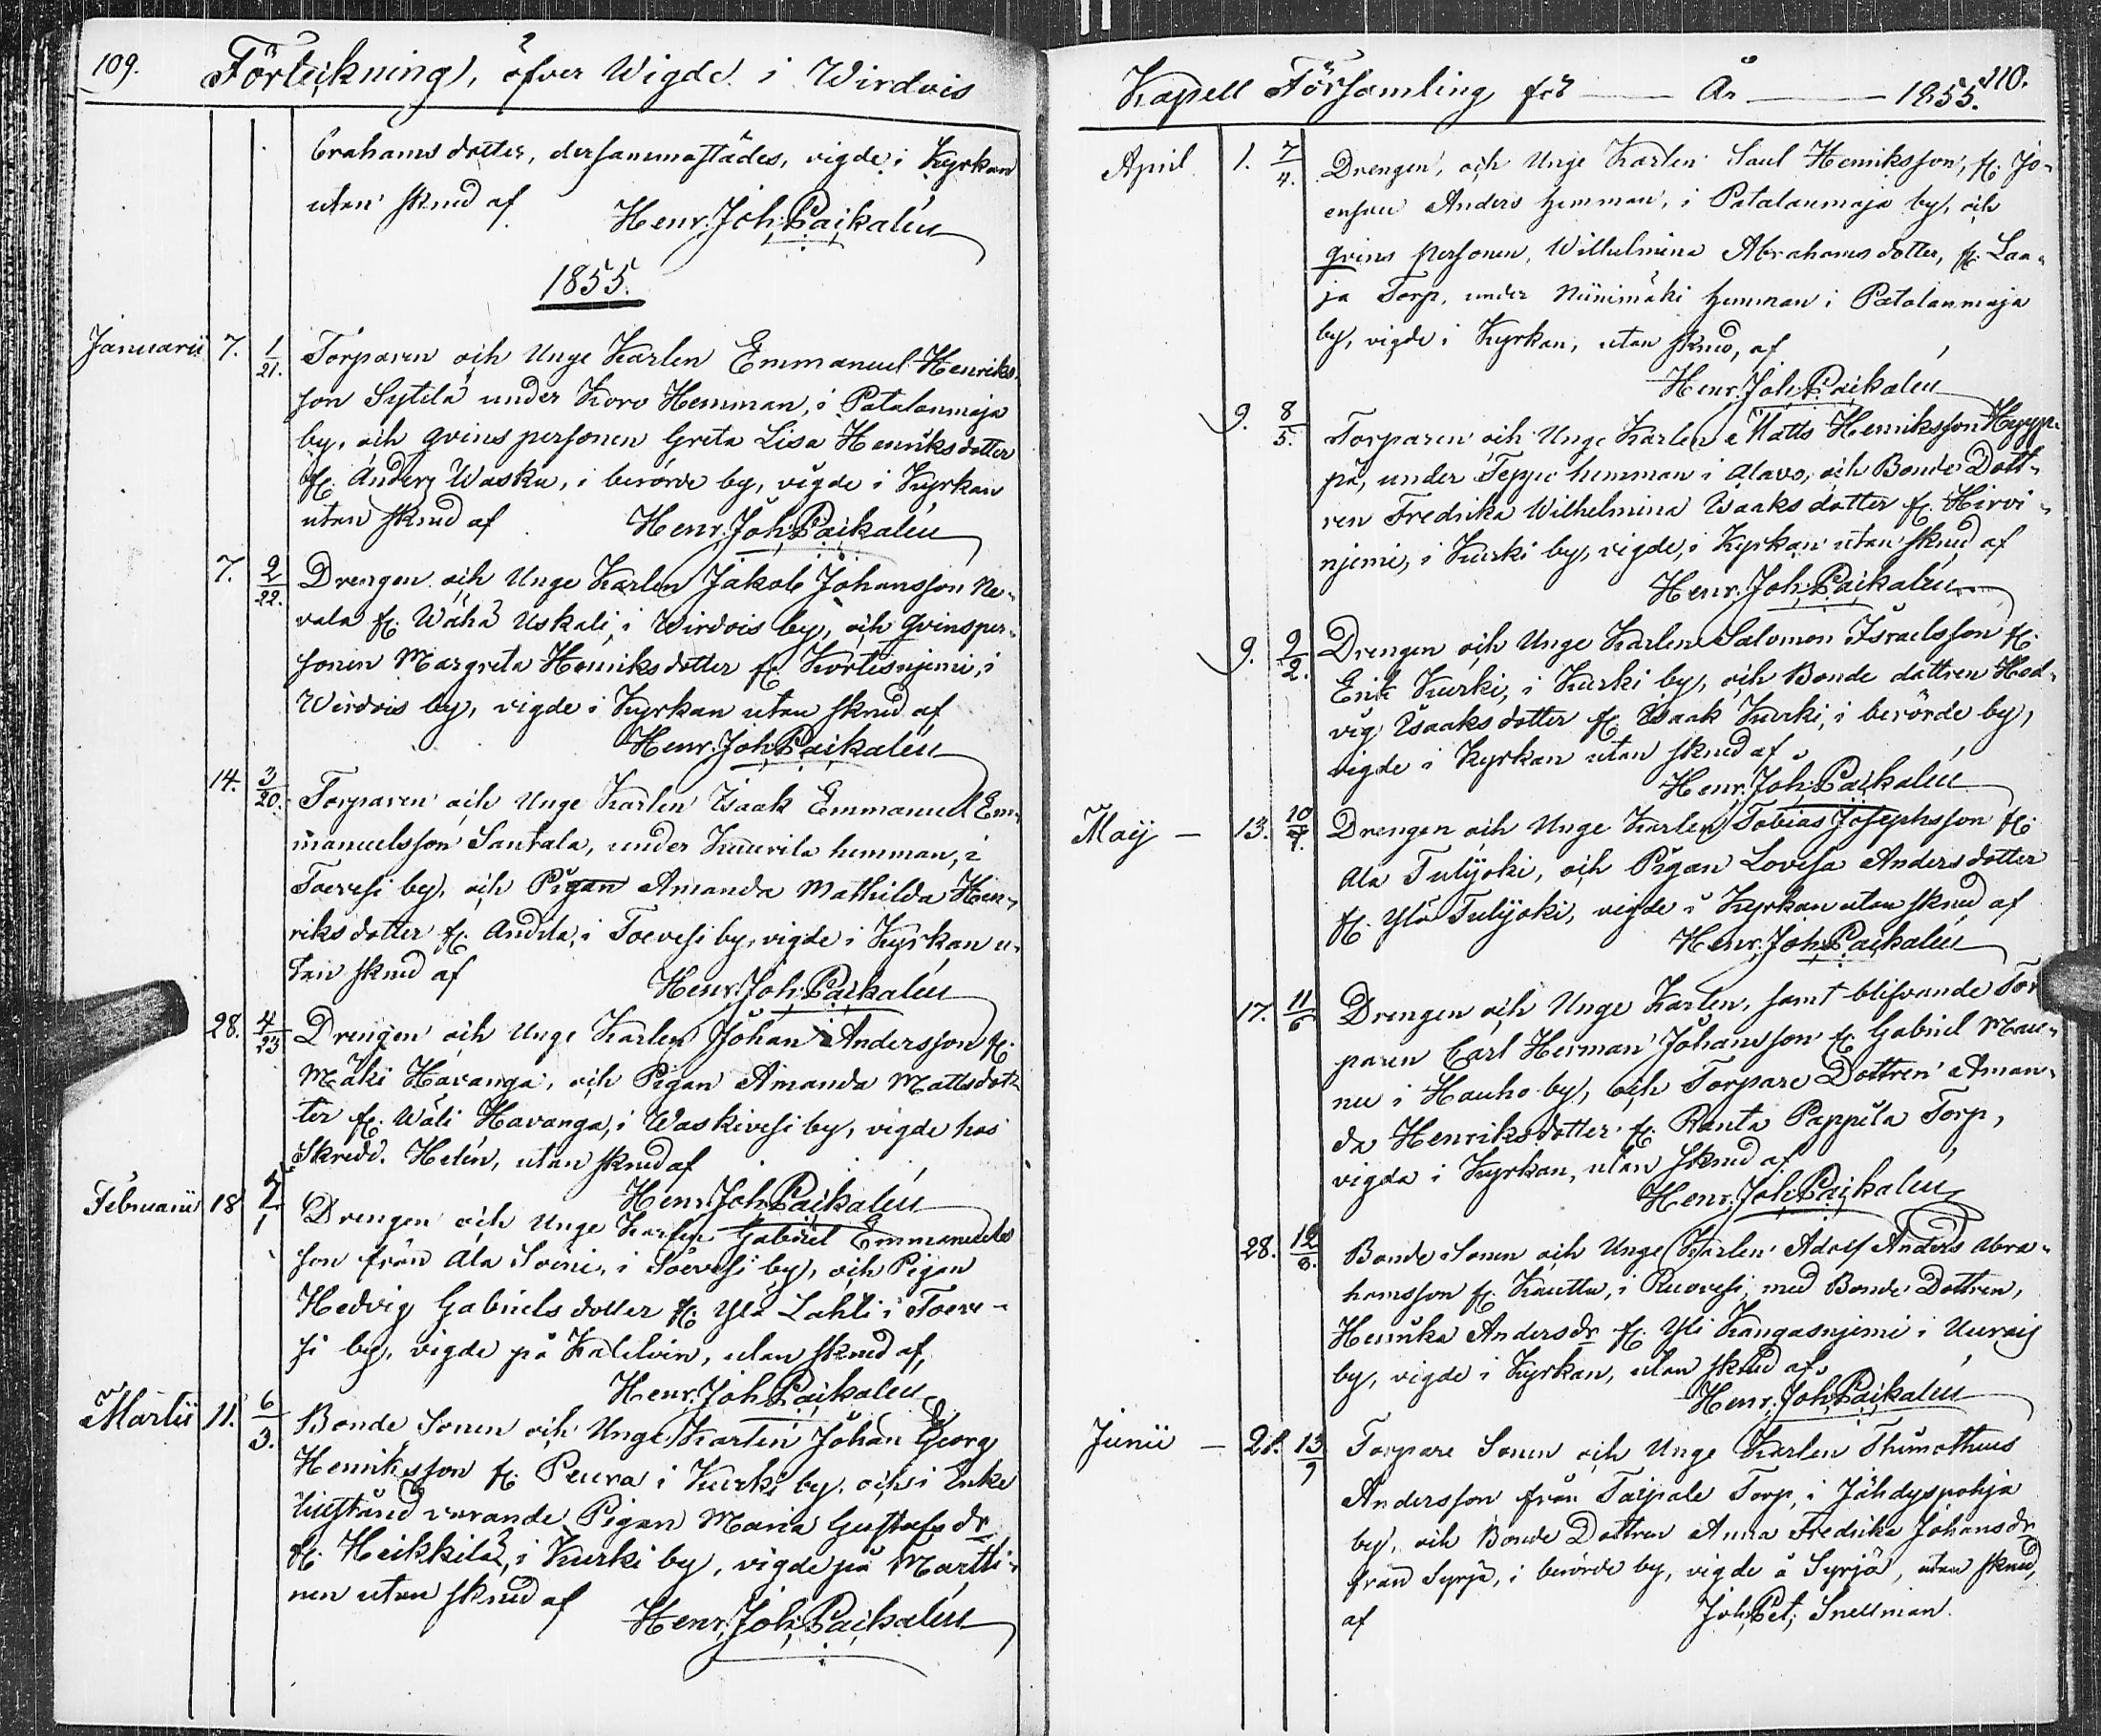 109. Förtekning, öfver Wigde i Wirdois
brahams dotter, dersammastädes, vigde i Kyrkan
utan skrud af
Henr. Joh. Paikalén
1855.
Januarii 7. 1/21. Torparen och Unge Karlen Emmanuel Henriks
son Sytelä under Koro Hemman, i Patalanmaja
by, och qvins personen Greta Lisa Henriksdotter
fr. Anders Wasku, i berörde by, vigde i Kyrkan
utan skrud af Henr. Joh. Paikalén
7. 2/22. Drengen och Unge Karlen Jakob Johansson Ne-
vala fr. Wähä Uskali, i Wirdois by, och qvinsper-
sonen Margreta Henriksdotter fr. Kortesnjemi, i
Wirdois by, vigde i Kyrkan utan skrud af
Henr. Joh. Paikalén
14. 3/20. Torparen och Unge Karlen Isaak Emmanuel Em-
manuelsson Santala, under Kaurila hemman, i
Toevesi by, och Pigan Amanda Mathilda Hen-
riks dotter fr. Andila, i Toevesi by, vigde i Kyrkan u-
tan skrud af Henr. Joh. Paikalén
28. 4/23 Drengen och Unge Karlen Johan Andersson fr.
Mäki Havanga, och Pigan Amanda Mattsdot-
ter fr. Wäli Havanga, i Waskivesi by, vigde hos
Skredd. Helén, utan skrud af
Henr. Joh. Paikalén
Februarii 18 5/1 Drengen och Unge Karlen Gabriel Emmanuels
son från Ala Soini, i Toevesi by, och Pigan
Hedvig Gabriels dotter fr. Ylä Lahti i Toeve-
si by, vigde på Kalelvin, utan skrud af,
Henr. Joh. Paikalén
Martii 11. 6/3. Bonde Sonen och Unge Karlen Johan Georg
Henriksson fr. Peura i Kurki by, och i Enke
tillstånd varande Pigan Maria Gustafs dr
fr. Heikkilä, i Kurki by, vigde på Martti-
nen utan skrud af
Henr. Joh. Paikalén
Kapell Församling för År 1855. 110.
April 1. 7/4. Drengen, och Unge Karlen Saul Henriksson, fr. Jo-
ensuu Anders hemman, i Patalanmaja by, och
qvins personen, Wilhelmina Abrahams dotter, fr. Laa-
ja Torp, under Niinimäki hemman i Patalanmaja
by, vigde i Kyrkan, utan skrud, af
Henr. Joh. Paikalén
9. 8/5. Torparen och Unge Karlen Matts Henriksson Hyyp-
pä, under Teppo hemman i Alavo, och Bonde Dott-
ren Fredrika Wilhelmina Isaaks dotter fr. Hirvi-
njemi, i Kurki by, vigde, i Kyrkan utan skrud af
Henr. Joh. Paikalén
9. 9/2. Drengen och Unge Karlen Salomon Israelsson fr.
Erik Kurki, i Kurki by, och Bonde dottren Hed-
vig Isaaks dotter fr. Isaak Kurki, i berörde by,
vigde i Kyrkan utan skrud af
Henr. Joh. Paikalén
Maij — 13. 10/7. Drengen och Unge Karlen Tobias Josephsson fr.
Ala Tulijoki, och Pigan Lovisa Anders dotter
fr. Ylä Tulijoki, vigde i Kyrkan utan skrud af
Henr. Joh. Paikalén
17. 11/6 Drengen och Unge Karlen, samt blifvande Tor
paren Carl Herman Johansson fr. Gabriel Mau-
nu i Hauho by, och Torpare Dottren Aman-
da Henriksdotter fr. Ranta Pappila Torp,
vigda i Kyrkan, utan skrud af
Henr. Joh. Paikalén
28. 12/8. Bonde Sonen och Unge Karlen Adolf Anders Abra-
hamsson fr. Kautta, i Ruovesi, med Bonde Dottren,
Henrika Andersdr fr. Yli Kangasnjemi i Uuraij
by, vigde i Kyrkan, utan skrud af
Henr. Joh. Paikalén
Junii — 21. 13/9 Torpare Sonen och Unge Karlen Thimotheus
Andersson från Taipale Torp, i Jähdyspohja
by, och Bonde Dottren Anna Fredrika Johansdr
från Syrjä, i berörde by, vigde å Syrjä, utan skrud,
af Joh. Pet. Snellman.